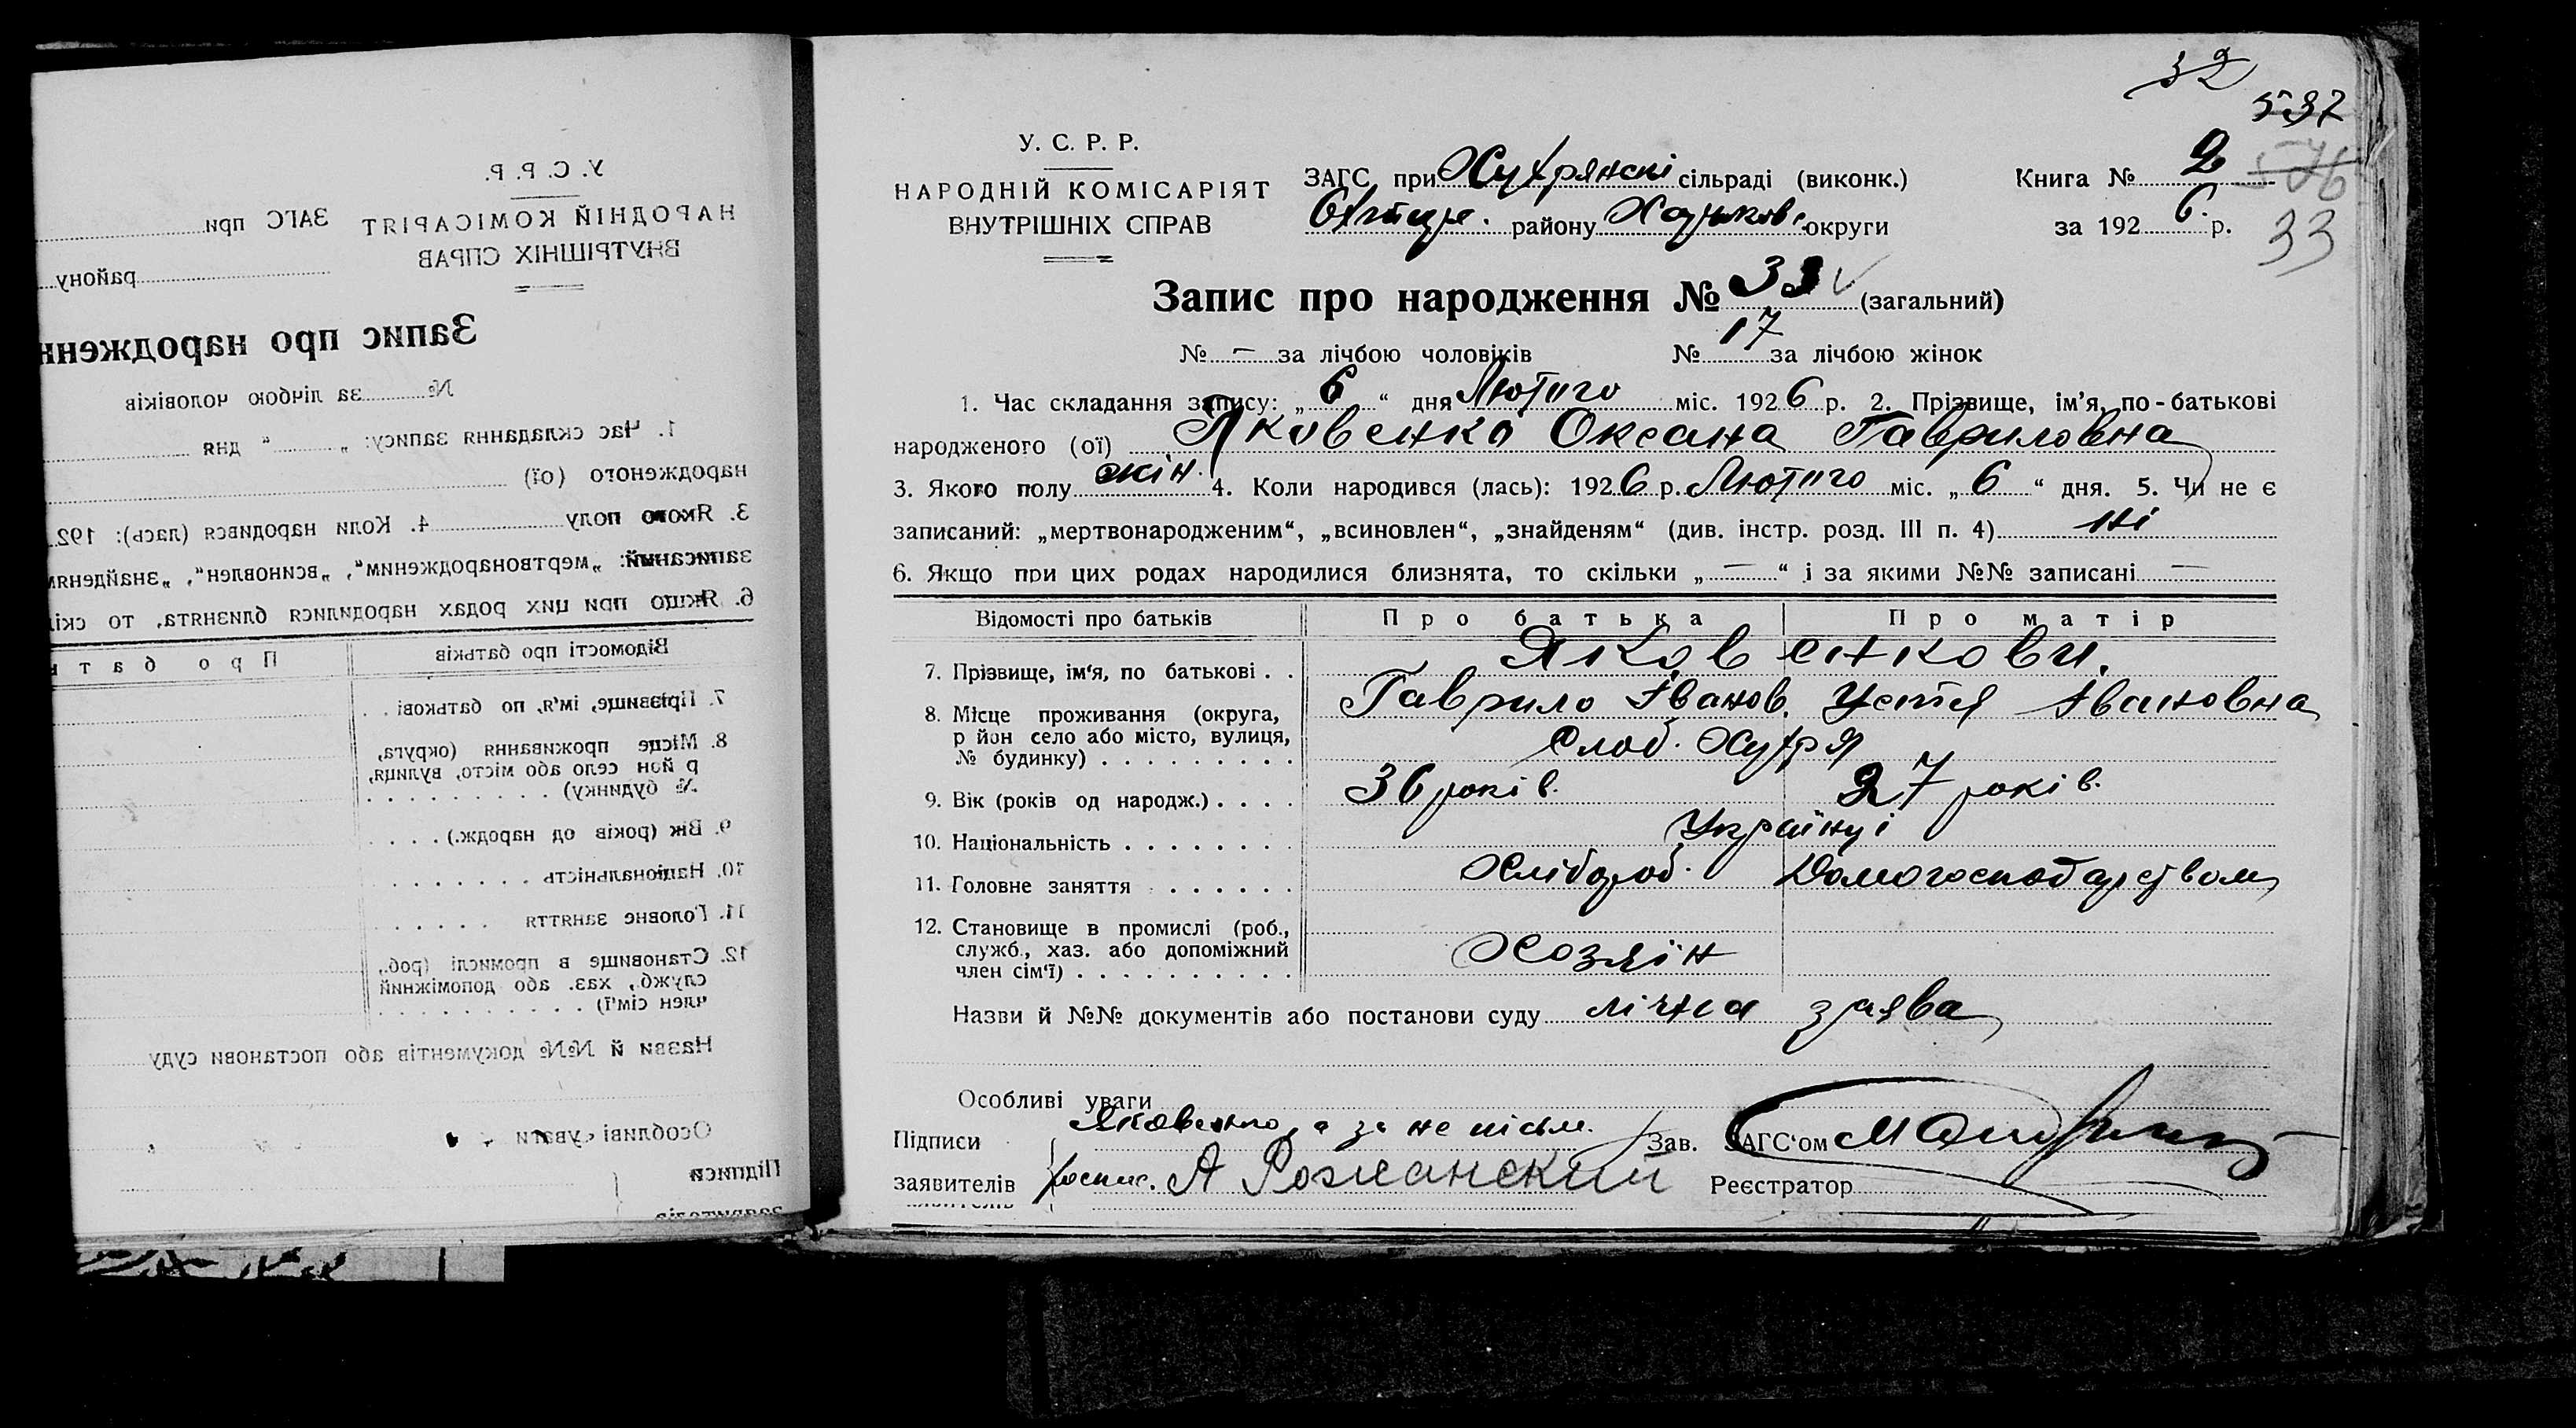 32
537
576
33
У. С. Р. Р.
НАРОДНІЙ КОМІСАРІЯТ
ВНУТРІШНІХ СПРАВ
ЗАГС при Хухрянскі сільраді (виконк.)
Охтир. району Харьков. округи
Книга № 2
за 1926 р.
Запис про народження № 33 (загальний)
№ — за лічбою чоловіків № 17 за лічбою жінок
1. Час складання запису: „6“ дня Лютого міс. 1926 р. 2. Прізвище, ім'я, по-батькові
народженого (ої) Яковенко Оксана Гавриловна
3. Якого полу жін. 4. Коли народився (лась): 1926 р. Лютого міс. „6“ дня. 5. Чи не є
записаний: „мертвонародженим“, „всиновлен“, „знайденям“ (див. інстр. розд. III п. 4) ні
6. Якщо при цих родах народилися близнята, то скільки „—“ і за якими №№ записані —
Відомості про батьків Про батька Про матір
7. Прізвище, ім'я, по батькові . . Яковенкови.
Гаврило Іванов. Устя Івановна
8. Місце проживання (округа,
р йон село або місто, вулиця,
№ будинку) . . . . . . . . . Слоб. Хухря
9. Вік (років од народж.) . . . . 36 років. 27 років.
10. Національність . . . . . . . . Українці
11. Головне заняття . . . . . . Хлібороб. Домогосподарством
12. Становище в промислі (роб.,
служб., хаз. або допоміжний
член сім'ї) . . . . . . . . . . Хозяїн
Назви й №№ документів або постанови суду лічна заява
Особливі уваги
Підписи
заявителів
Яковенко, а за не письм.
роспис. А Рожанский
Зав. ЗАГС'ом
Реєстратор
У. С. Р. Р.
НАРОДНІЙ КОМІСАРІЯТ
ВНУТРІШНІХ СПРАВ
ЗАГС при
району
Запис про народженн
№ за лічбою чоловіків
1. Час складання запису: „ “ дня
народженого (ої)
3. Якого полу 4. Коли народився (лась): 192
записаний: „мертвонародженим“, „всиновлен“, „знайденям
6. Якщо при цих родах народилися близнята, то скі
Відомості про батьків Про бат
7. Прізвище, ім'я, по батькові . .
8. Місце проживання (округа,
р йон село або місто, вулиця,
№ будинку) . . . . . . . . .
9. Вік (років од народж.) . . . .
10. Національність . . . . . . .
11. Головне заняття . . . . . .
12. Становище в промислі (роб.,
служб., хаз. або допоміжний
член сім'ї) . . . . . . . . . .
Назви й №№ документів або постанови суду
Особливі уваги
Підписи
заявителів